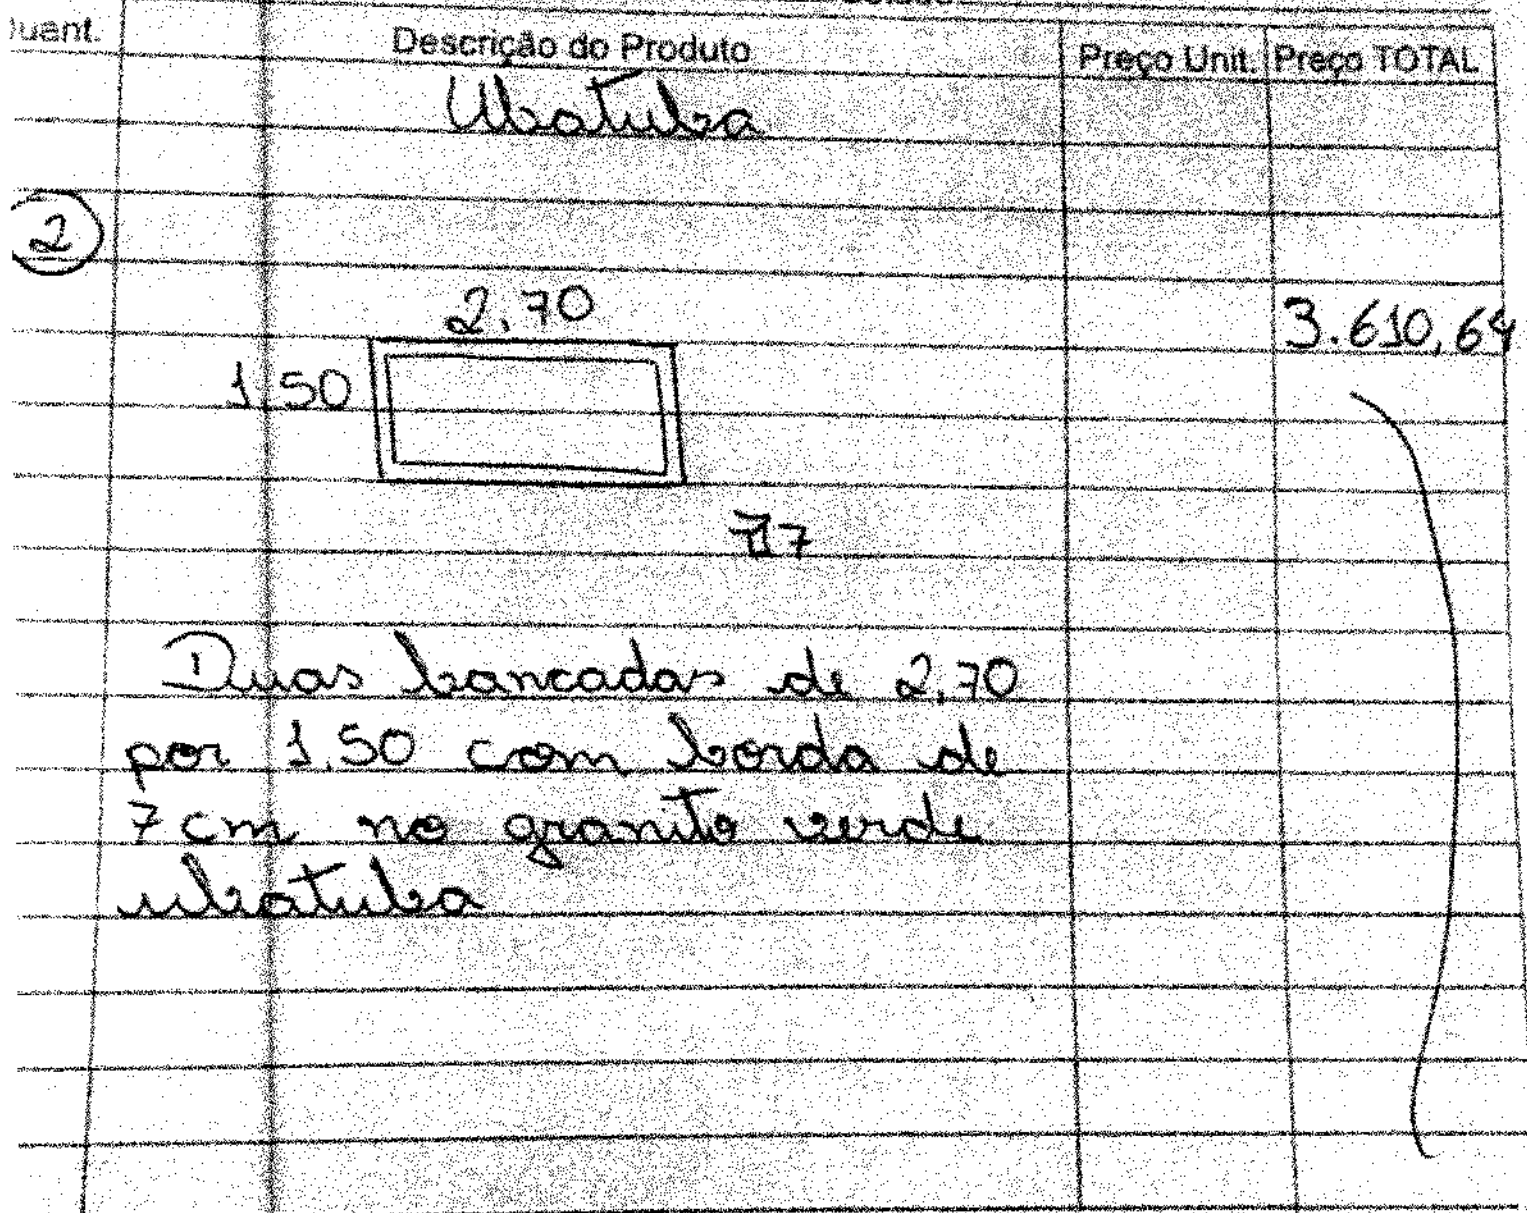 Quant.
Descrição do Produto
Preço Unit.
Preço TOTAL
Ubatuba
2
2.70
3.610,64
1.50
7
Duas bancadas de 2,70
por 1.50 com borda de
7 cm no granito verde
ubatuba